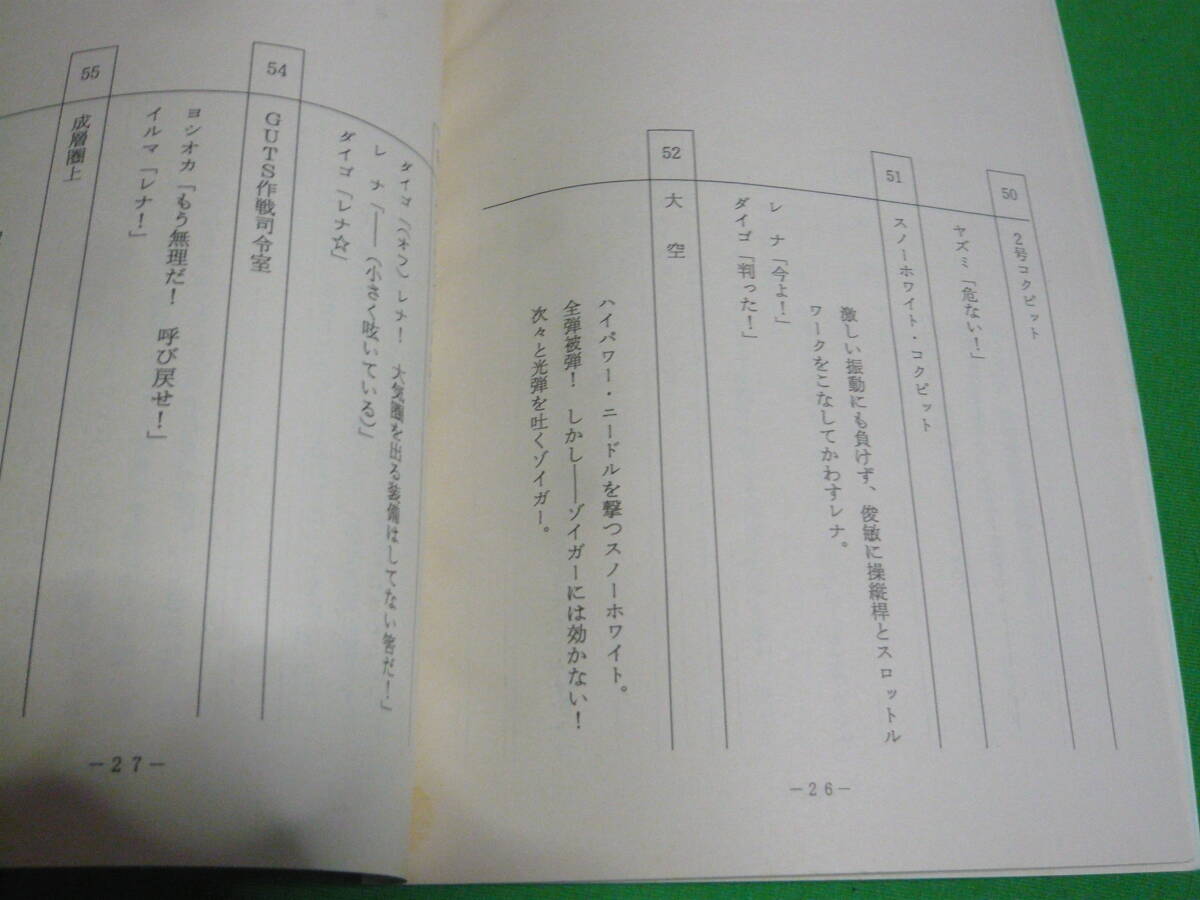 50
2号コクピット
ヤズミ「危ない！」
51
スノーホワイト・コクピット
激しい振動にも負けず、俊敏に操縦桿とスロットル
ワークをこなしてかわすレナ。
レナ「今よ！」
ダイゴ「判った！」
52
大空
ハイパワー・ニードルを撃つスノーホワイト。
全弾被弾！　しかし――ゾイガーには効かない！
次々と光弾を吐くゾイガー。
－26－
ダイゴ「（オフ）レナ！　大気圏を出る装備はしてない筈だ！」
レナ「――（小さく呟いている）」
ダイゴ「レナ☆」
54
GUTS作戦司令室
ヨシオカ「もう無理だ！　呼び戻せ！」
イルマ「レナ！」
55
成層圏上
－27－